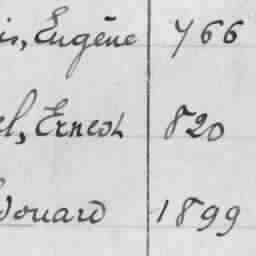 is, Eugène 766
el, Ernest 820
douard 1899